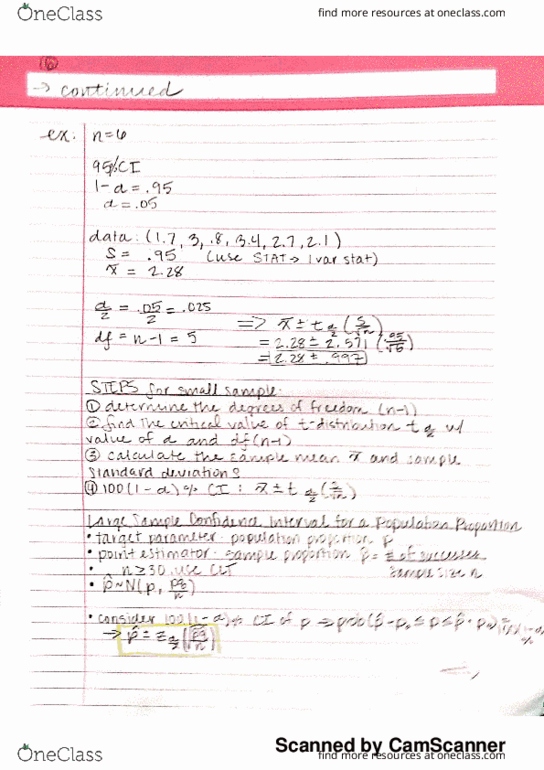 OneClass
find more resources at oneclass.com
6
→ continued
ex: n=6
95% CI
1-α = .95
α = .05
data: (1.7, 3, .8, 3.4, 2.7, 2.1)
S = .95 (use STAT → 1 var stat)
x̄ = 2.28
α/2 = .05/2 = .025
⇒ x̄ ± t α/2 (s/√n)
df = n-1 = 5
= 2.28 ± 2.571
= 2.28 ± .997
STEPS for small sample:
① determine the degrees of freedom (n-1)
② find the critical value of t-distribution t α/2 w/
value of α and df(n-1)
③ calculate the sample mean x̄ and sample
standard deviation S
④ 100(1-α)% CI: x̄ ± t α/2 (s/√n)
Large Sample Confidence Interval for a Population Proportion
• target parameter: population proportion p
• point estimator: sample proportion p̂ = # of successes
sample size n
• n ≥ 30, use CLT
• p̂~N(p, pq/n)
• consider 100(1-α)% CI of p ⇒
→ p̂ ± z α/2
Scanned by CamScanner
OneClass
find more resources at oneclass.com